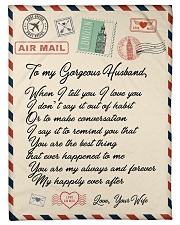 AIR MAIL
To my Gorgeous Husband,
When I tell you I love you
I don't say it out of habit
Or to make conversation
I say it to remind you that
You are the best thing
that ever happened to me
You are my always and forever
My happily ever after
Love, Your Wife